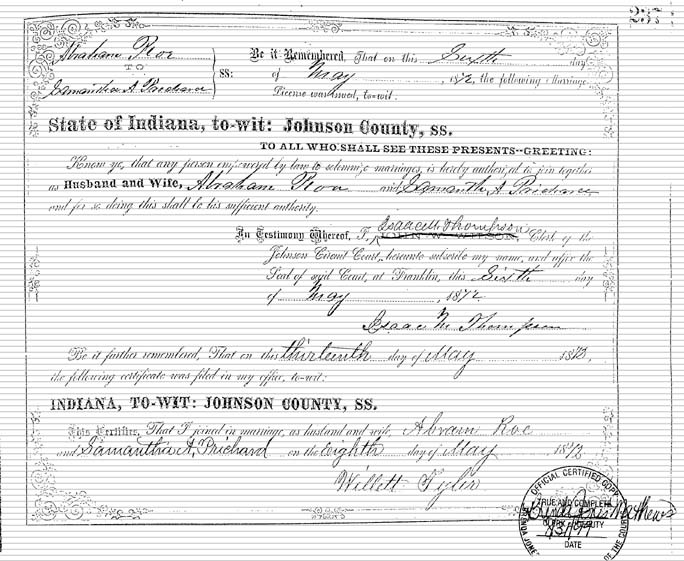 237
Abraham Roe
TO
Samantha A. Prichard
SS:
Be it Remembered, That on this Sixth day
of May, 1872, the following Marriage
License was issued, to-wit.
State of Indiana, to-wit: Johnson County, ss.
TO ALL WHO SHALL SEE THESE PRESENTS--GREETING:
Know ye, that any person empowered by law to solemnize marriages, is hereby authorized to join together
as Husband and Wife, Abraham Roe and Samantha A Prichard
and for so doing this shall be his sufficient authority.
Isaac M Thompson
In Testimony Whereof, I, JOHN W. WILSON, Clerk of the
Johnson Circuit Court, hereunto subscribe my name, and affix the
Seal of said Court, at Franklin, this Sixth day
of May, 1872
Isaac M. Thompson
Be it further remembered, That on this thirteenth day of May 1872,
the following certificate was filed in my office, to-wit:
INDIANA, TO-WIT: JOHNSON COUNTY, SS.
This Certifies, That I joined in marriage, as husband and wife, Abram Roe
and Samantha A. Prichard on the Eighth day of May 1872
Willett Tyler
OFFICIAL CERTIFIED COPY
TRUE AND COMPLETE
Mathews
CLERK DEPUTY
DATE
OF THE COURT